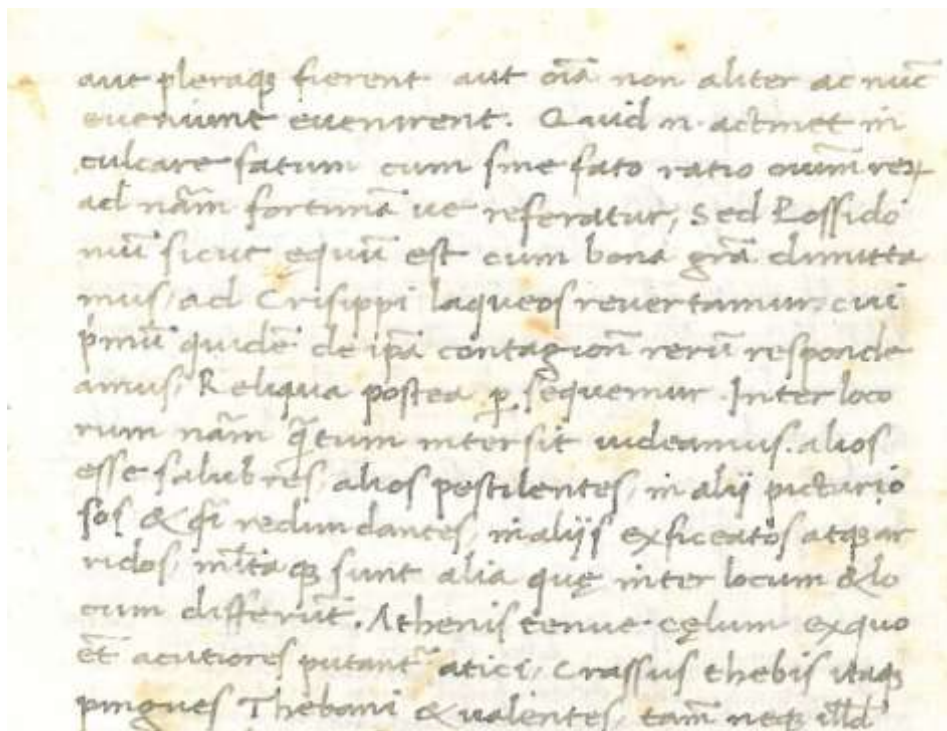 aut pleraqꝫ fierent aut oīa non aliter ac nūc
eueniunt euenirent. Quid n. actinet in
culcare fatum cum sine fato ratio oiūm reꝝ
ad nām fortunā ue referatur, Sed Possido
niū sicut equū est cum bona grā dimitta
mus, ad Crisippi laqueos reuertamur. cui
pͥmū quidē de ip̄a contagion̄ rerū responde
amus, Reliqua postea ꝑ sequemur. Inter loco
rum nām q̄tum intersit uideamus. alios
esse salubres, alios pestilentes, in alij picturio
sos & redundantes, in alijs exsiccatos atqꝫ ar
ridos, ml̄taqꝫ sunt alia quę inter locum & lo
cum differūt. Athenis tenue cęlum exquo
ēt acutiores putant᷑ atici, Crassus thebis itaqꝫ
pingues Thebani & ualentes, tam̄ neqꝫ ill̄d